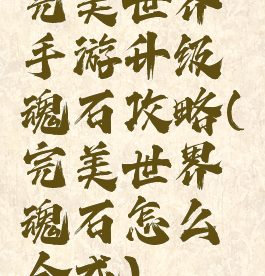 完美世界
手游升级
魂石攻略(
完美世界
魂石怎么
合成)